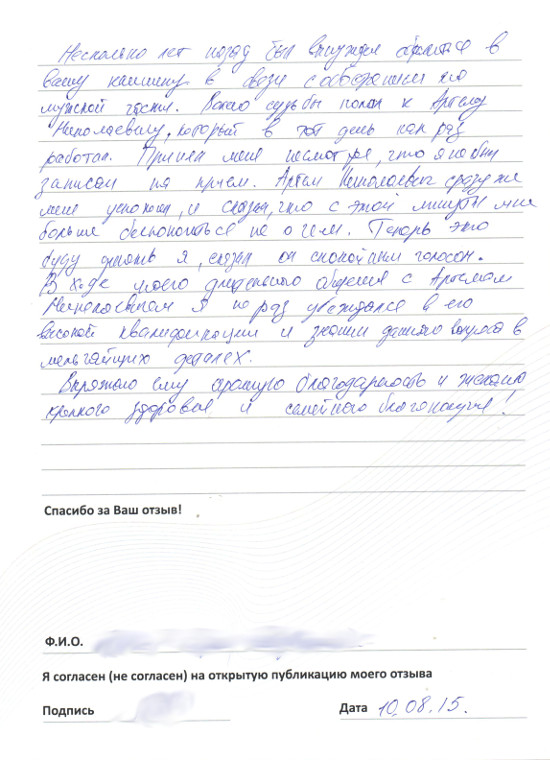 Несколько лет назад был вынужден обратится в
вашу клинику в связи с обострением по
мужской части. Волею судьбы попал к Артёму
Николаевичу, который в тот день как раз
работал. Принял меня несмотря, что я не был
записан на прием. Артём Николаевич сразу же
меня успокоил, и сказал, что с этой минуты мне
больше беспокоиться не о чем. Теперь это
буду делать я, сказал он спокойным голосом.
В ходе моего длительного общения с Артемом
Николаевичем я не раз убеждался в его
высокой квалификации и знании данного вопроса в
мельчайших деталях.
Выражаю ему огромную благодарность и желаю
крепкого здоровья и семейного благополучия!
Спасибо за Ваш отзыв!
Ф.И.О.
Я согласен (не согласен) на открытую публикацию моего отзыва
Подпись Дата 10.08.15.